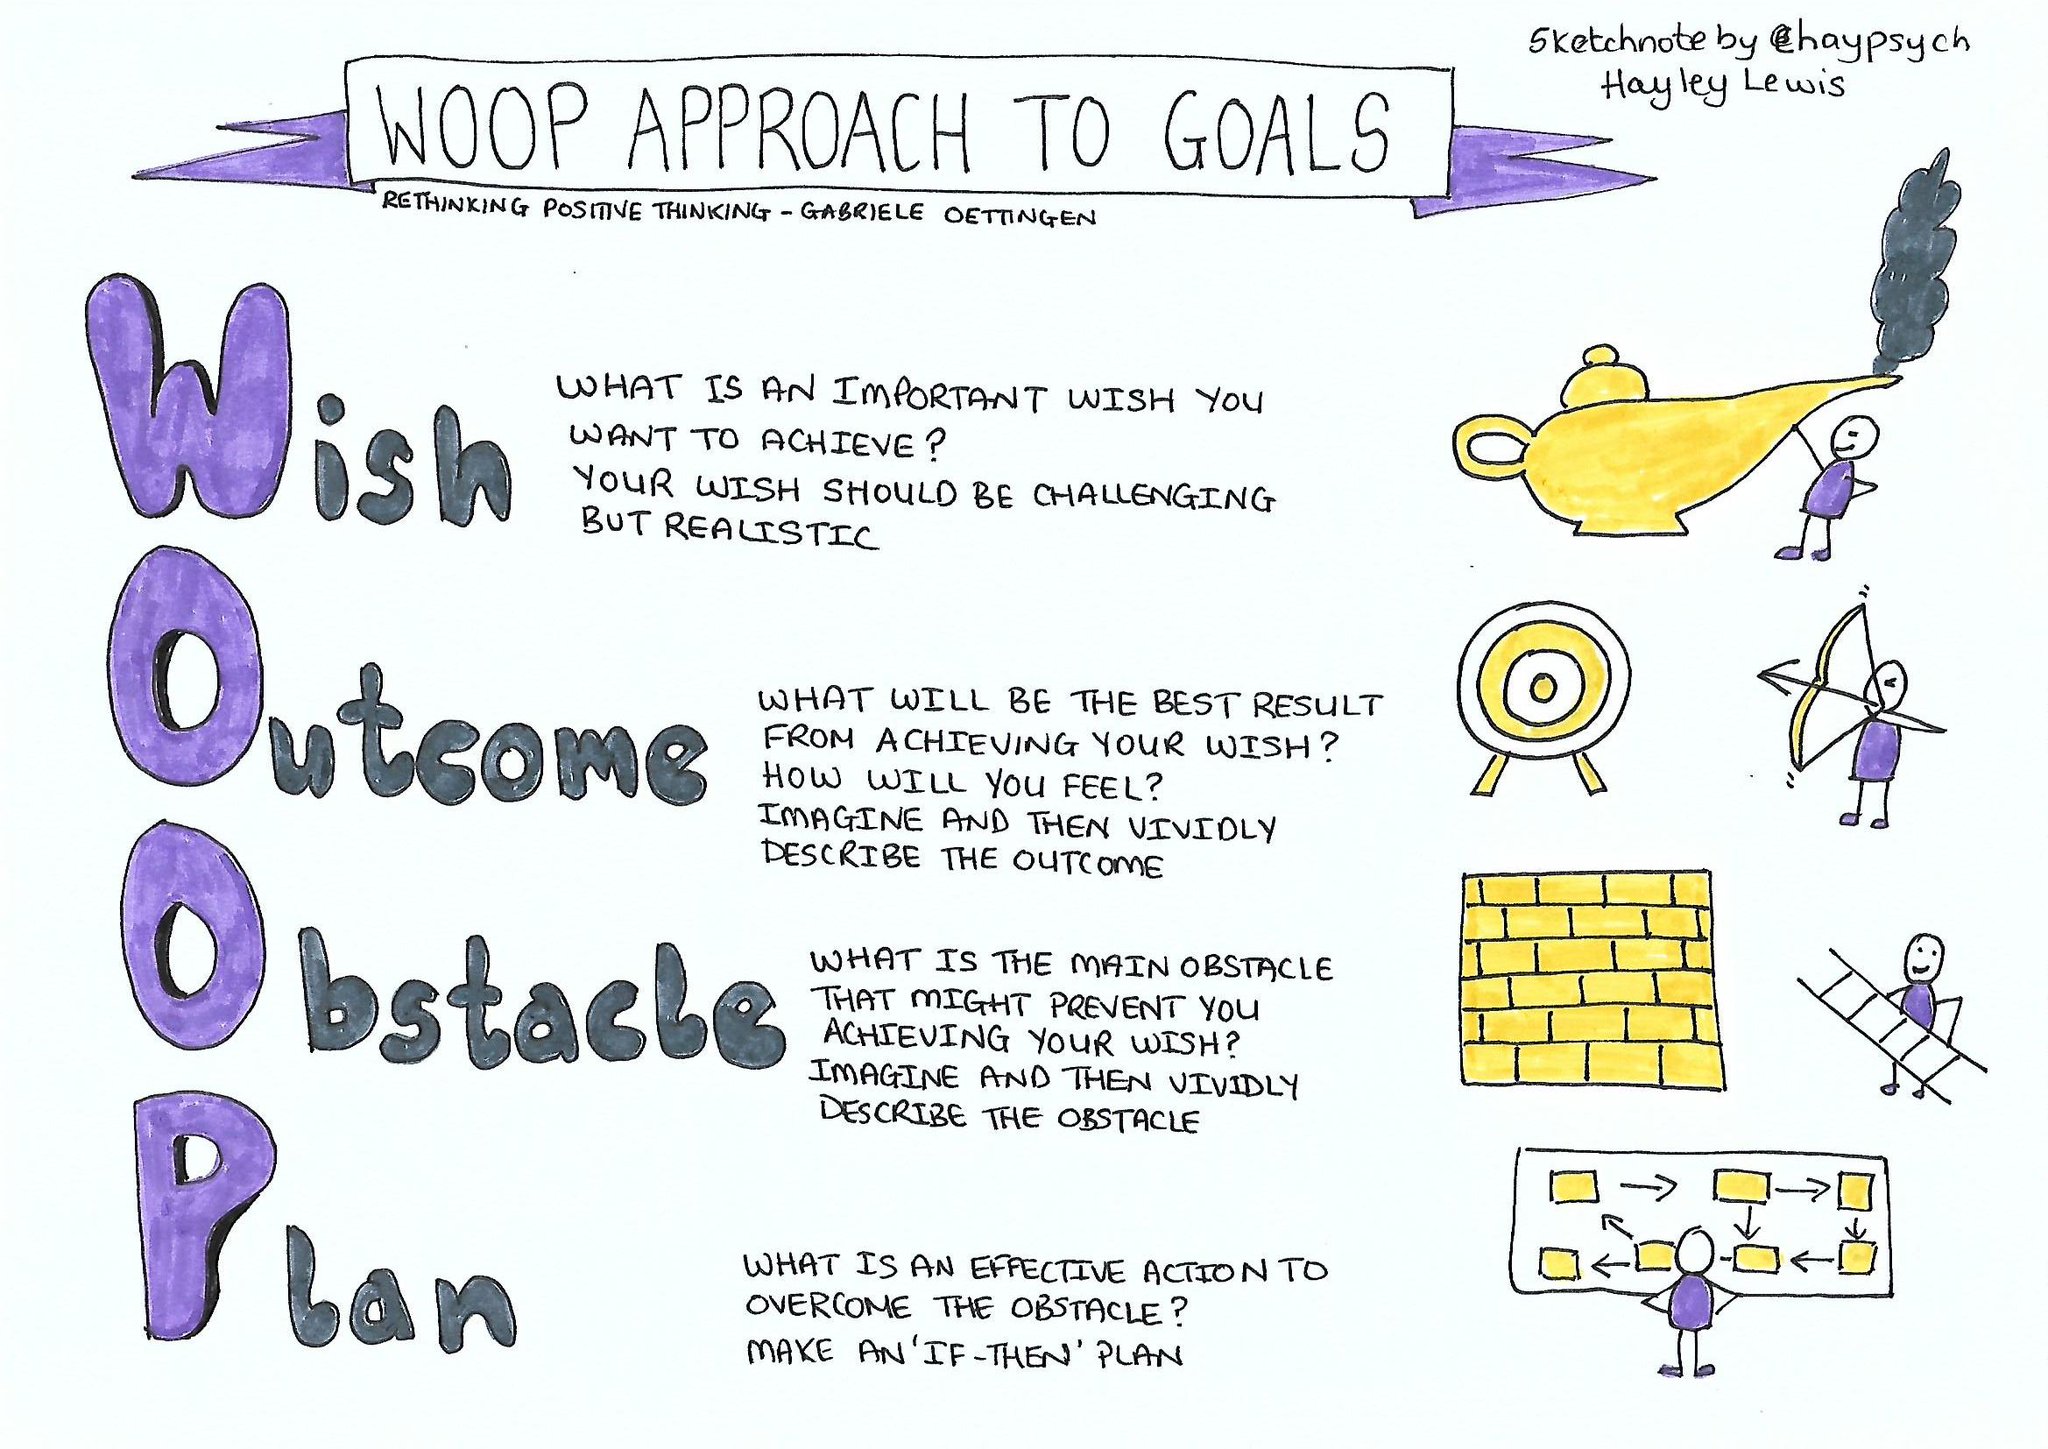 Sketchnote by @haypsych
Hayley Lewis
WOOP APPROACH TO GOALS
RETHINKING POSITIVE THINKING - GABRIELE OETTINGEN
Wish
WHAT IS AN IMPORTANT WISH YOU
WANT TO ACHIEVE?
YOUR WISH SHOULD BE CHALLENGING
BUT REALISTIC
Outcome
WHAT WILL BE THE BEST RESULT
FROM ACHIEVING YOUR WISH?
HOW WILL YOU FEEL?
IMAGINE AND THEN VIVIDLY
DESCRIBE THE OUTCOME
Obstacle
WHAT IS THE MAIN OBSTACLE
THAT MIGHT PREVENT YOU
ACHIEVING YOUR WISH?
IMAGINE AND THEN VIVIDLY
DESCRIBE THE OBSTACLE
Plan
WHAT IS AN EFFECTIVE ACTION TO
OVERCOME THE OBSTACLE?
MAKE AN 'IF-THEN' PLAN